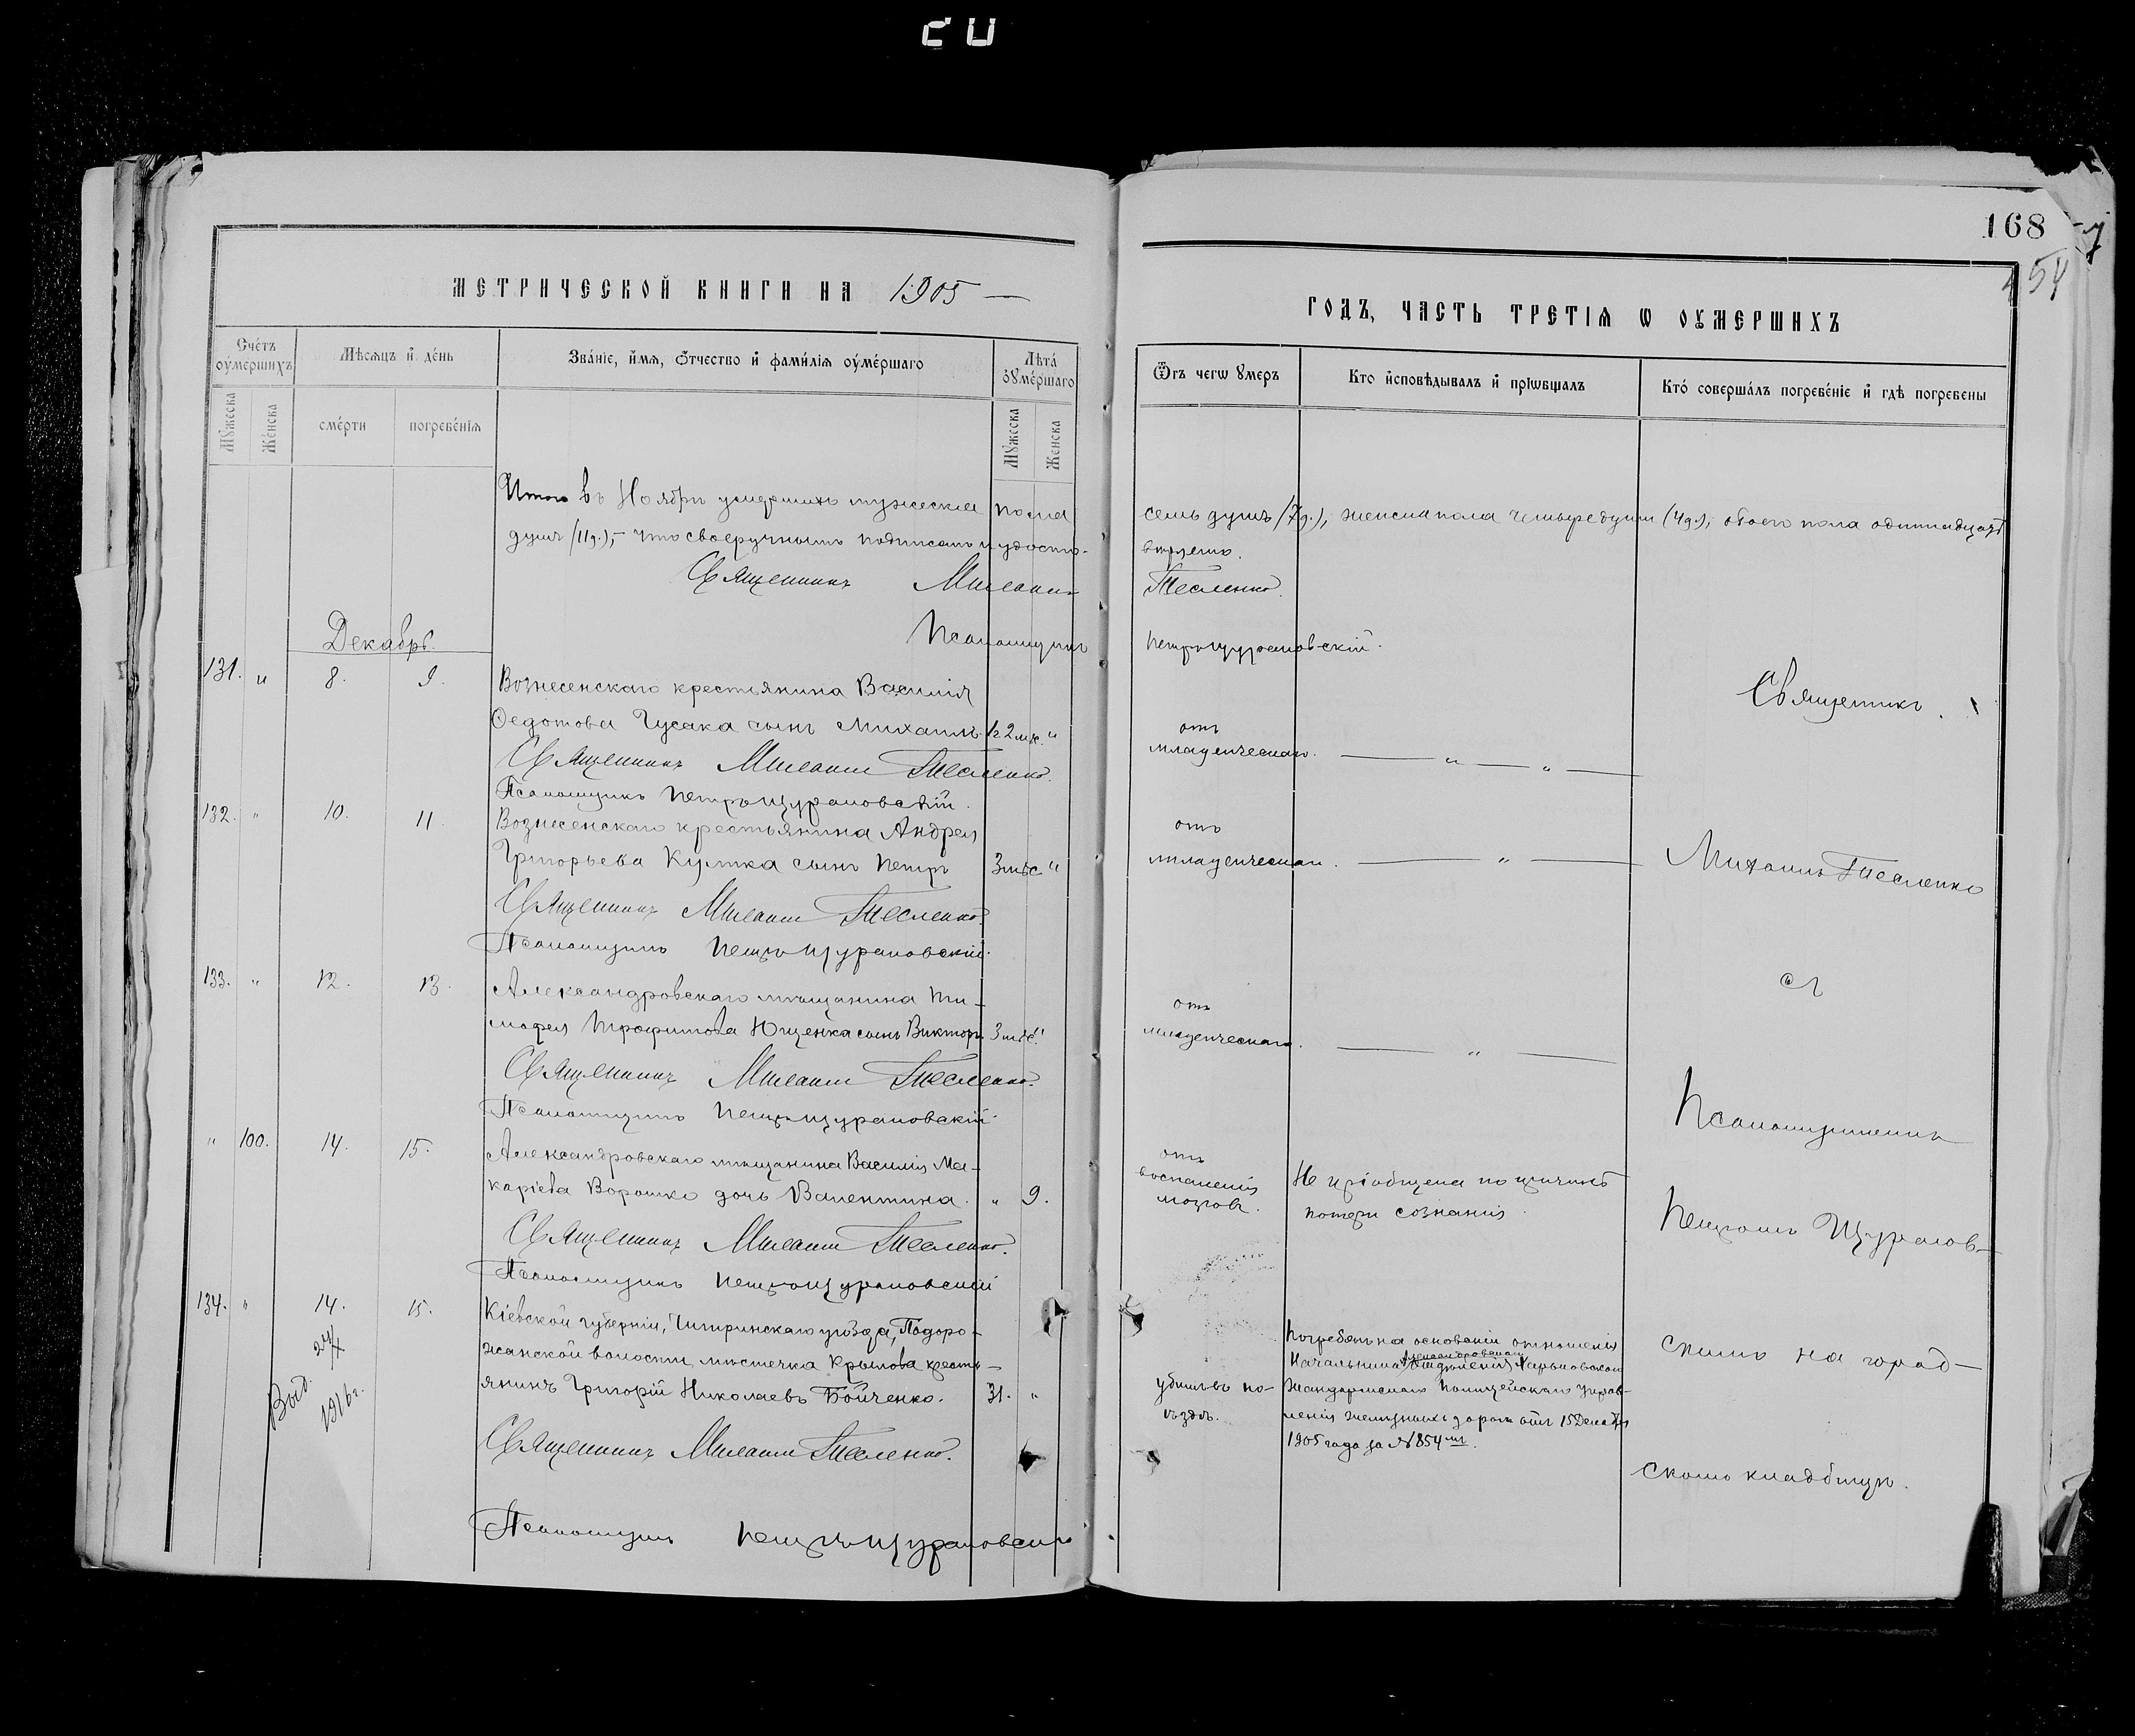 20
168
54
МЕТРИЧЕСКОЙ КНИГИ НА 1905 —
ГОДЪ, ЧАСТЬ ТРЕТІЯ Ѡ ОУМЕРШИХЪ
Счетъ оумершихъ
Мѣсяцъ и день
Званіе, имя, отчество и фамилія оумершаго
Лѣта оумершаго
Мужеска
Женска
смерти
погребенія
Мужеска
Женска
Ѿ чегѡ умеръ
Кто исповѣдывалъ и пріѡбщалъ
Кто совершалъ погребеніе и гдѣ погребены
Итого въ Ноябрѣ умершихъ мужеска пола семь душъ (7 д.), женска пола четыре души (4 д.), обоего пола одиннадцать
душъ (11 д.),- что своеручнымъ подписомъ и удосто-
вѣряемъ.
Священникъ Михаилъ Тесленко.
Псаломщикъ Петръ Щурановскій.
Декабрь.
131. " 8. 9. Вознесенскаго крестьянина Василія
Ѳедотова Гусака сынъ Михаилъ 2 мѣс. "
отъ
младенческаго. — " — " —
Священникъ Михаилъ Тесленко.
Псаломщикъ Петръ Щурановскій.
132. " 10. 11. Вознесенскаго крестьянина Андрея
Григорьева сынъ Петръ 3 мѣс "
отъ
младенческаго. — " —
Священникъ Михаилъ Тесленко.
Псаломщикъ Петръ Щурановскій.
133. " 12. 13. Александровскаго мѣщанина Ти-
мофея Трофимова Ющенка сынъ Викторъ 3 мѣс. "
отъ
младенческаго. — " —
Священникъ Михаилъ Тесленко.
Псаломщикъ Петръ Щурановскій.
" 100. 14. 15. Александровскаго мѣщанина Василія Ма-
каріева Ворошко дочь Валентина. " 9.
отъ
воспаленія
мозговъ.
Не пріобщена по причинѣ
потери сознанія.
Священникъ Михаилъ Тесленко.
Псаломщикъ Петръ Щурановскій
134. " 14. 15. Кіевской губерніи, Чигиринскаго уѣзда, Подоро-
жанской волости, мѣстечка Крылова кресть-
янинъ Григорій Николаевъ Бойченко. 31. "
Выд.
1916 г.
убитъ въ по-
ѣздѣ.
Погребенъ на основаніи отношенія
Начальника Александровскаго Отдѣленія Харьковскаго
Жандармскаго Полицейскаго Управ-
ленія желѣзныхъ дорогъ отъ 15 Декабря
1905 года за № 854-мъ.
Священникъ Михаилъ Тесленко.
Псаломщикъ Петръ Щурановскій
Священникъ
Михаилъ Тесленко
съ
Псаломщикомъ
Петромъ Щуранов-
скимъ на город-
скомъ кладбищѣ.